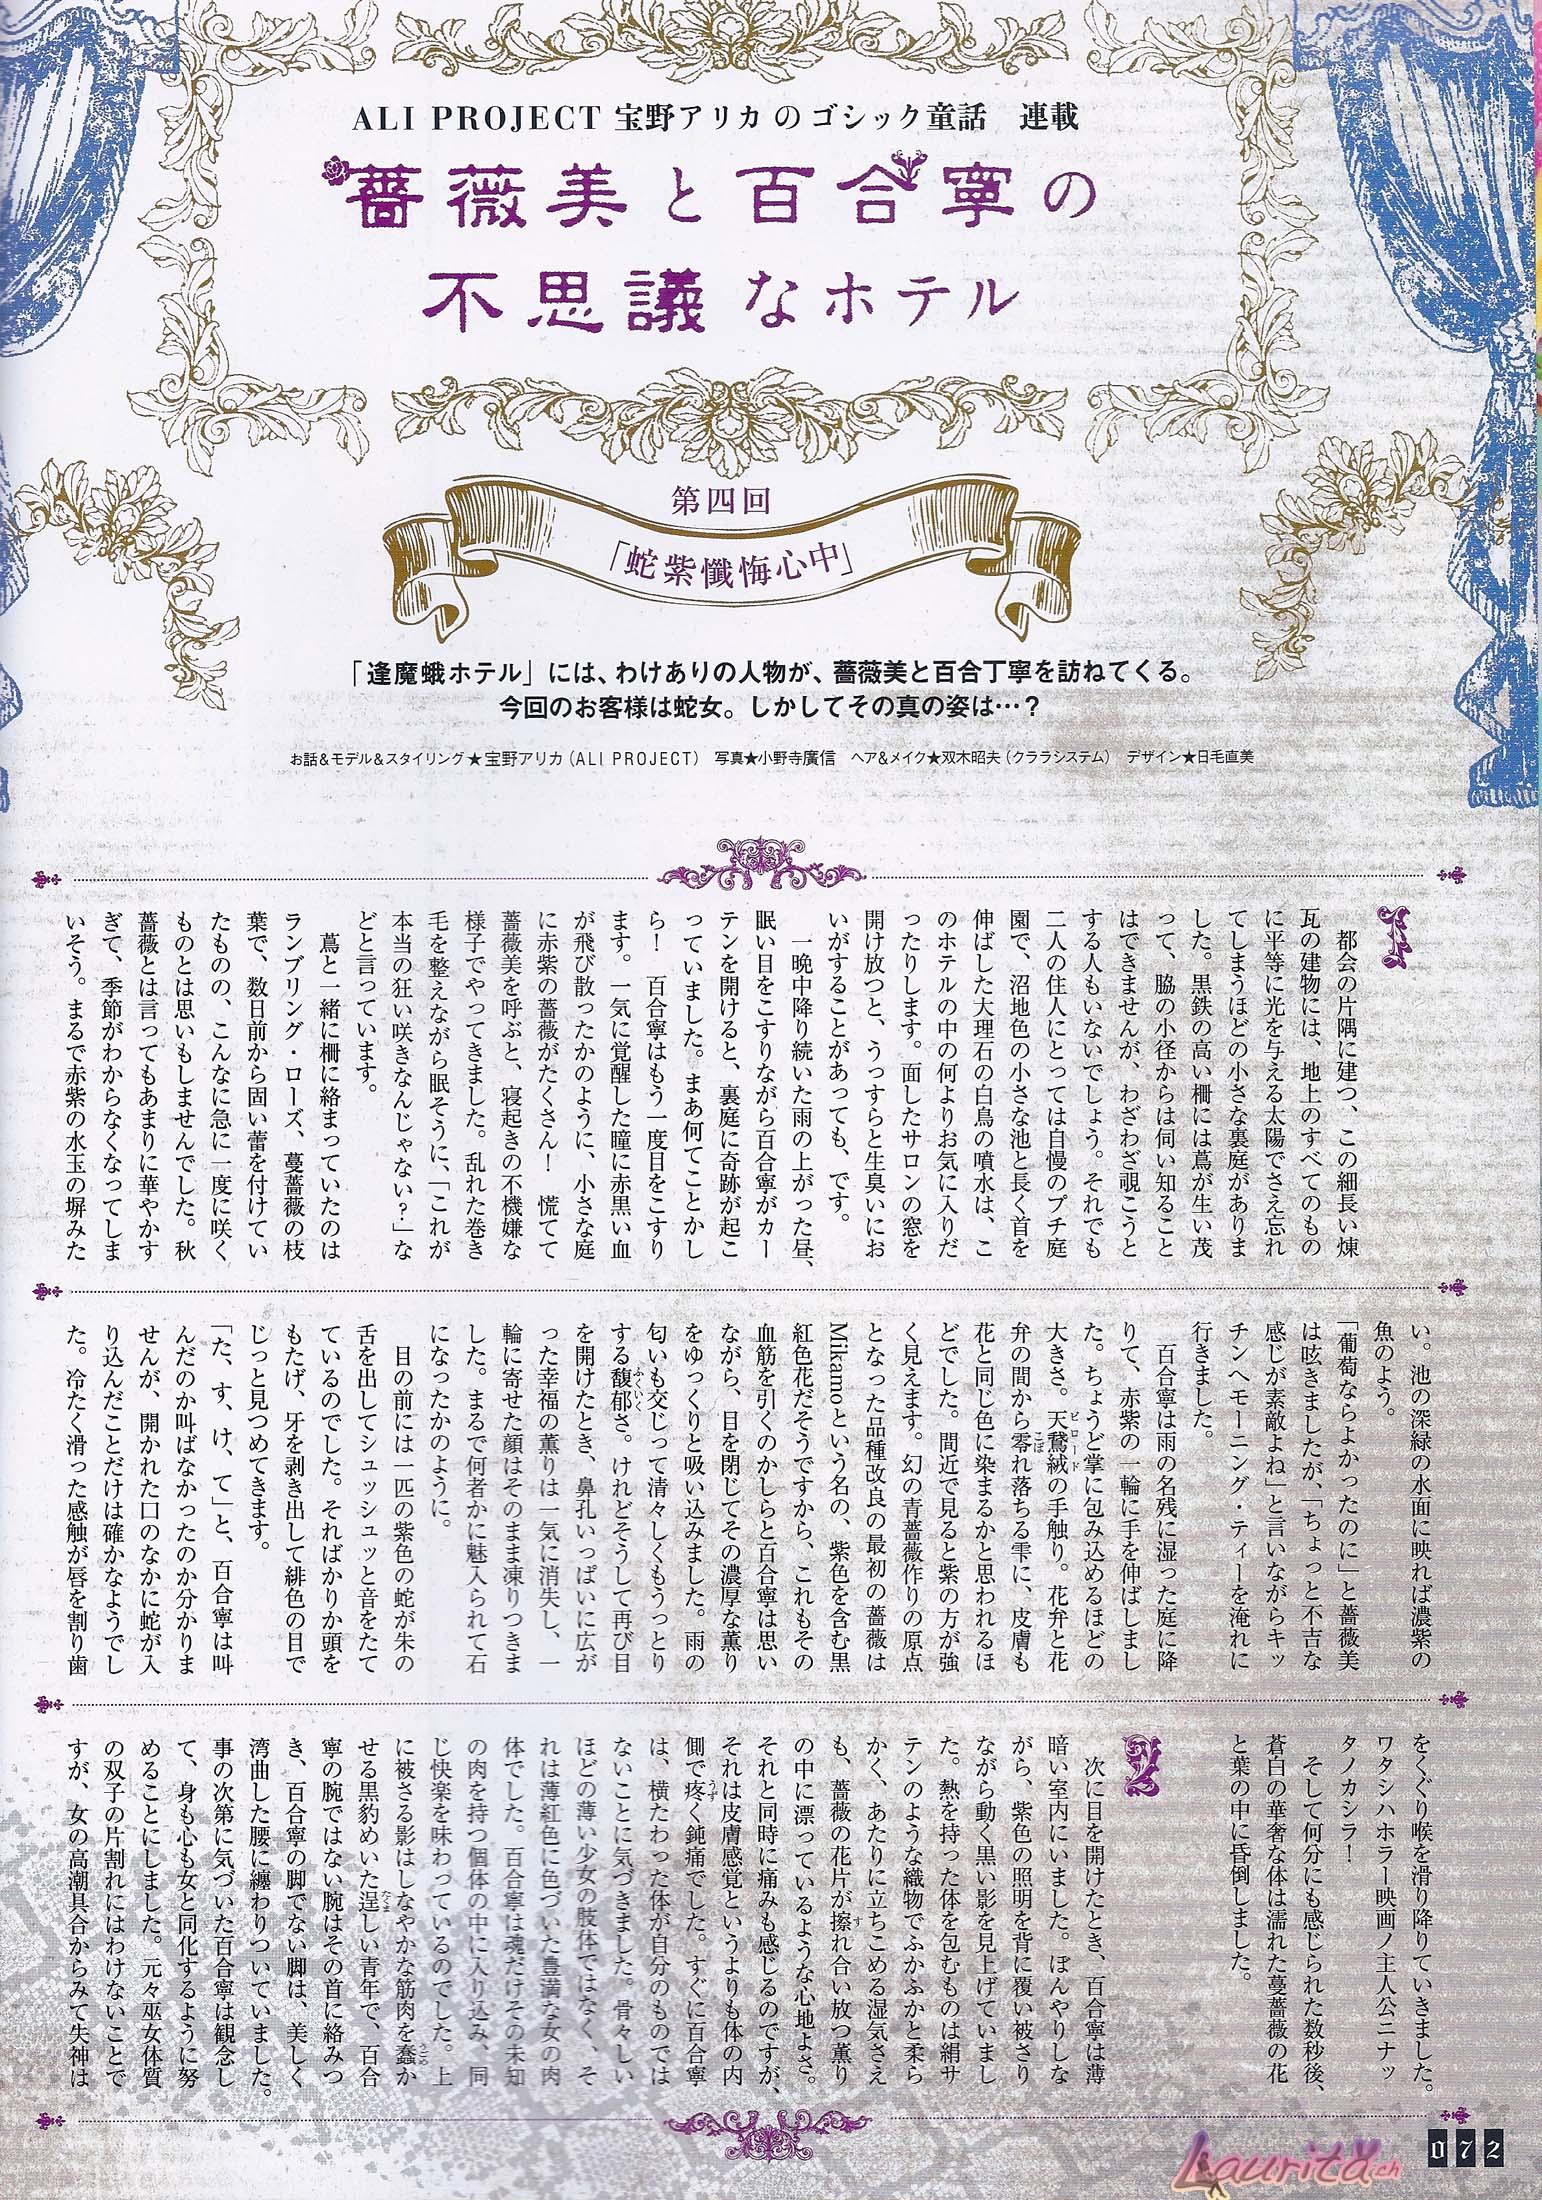 ALI PROJECT 宝野アリカのゴシック童話　連載
薔薇美と百合寧の
不思議なホテル
第四回
「蛇紫懺悔心中」
「逢魔蛾ホテル」には、わけありの人物が、薔薇美と百合丁寧を訪ねてくる。
今回のお客様は蛇女。しかしてその真の姿は…？
お話&モデル&スタイリング★宝野アリカ（ALI PROJECT）　写真★小野寺廣信　ヘア&メイク★双木昭夫（クララシステム）　デザイン★日毛直美
1
都会の片隅に建つ、この細長い煉
瓦の建物には、地上のすべてのもの
に平等に光を与える太陽でさえ忘れ
てしまうほどの小さな裏庭がありま
した。黒鉄の高い柵には蔦が生い茂
って、脇の小径からは伺い知ること
はできませんが、わざわざ覗こうと
する人もいないでしょう。それでも
二人の住人にとっては自慢のプチ庭
園で、沼地色の小さな池と長く首を
伸ばした大理石の白鳥の噴水は、こ
のホテルの中の何よりお気に入りだ
ったりします。面したサロンの窓を
開け放つと、うっすらと生臭いにお
いがすることがあっても、です。
一晩中降り続いた雨の上がった昼、
眠い目をこすりながら百合寧がカー
テンを開けると、裏庭に奇跡が起こ
っていました。まあ何てことかし
ら！　百合寧はもう一度目をこすり
ます。一気に覚醒した瞳に赤黒い血
が飛び散ったかのように、小さな庭
に赤紫の薔薇がたくさん！　慌てて
薔薇美を呼ぶと、寝起きの不機嫌な
様子でやってきました。乱れた巻き
毛を整えながら眠そうに、「これが
本当の狂い咲きなんじゃない？」な
どと言っています。
蔦と一緒に柵に絡まっていたのは
ランブリング・ローズ、蔓薔薇の枝
葉で、数日前から固い蕾を付けてい
たものの、こんなに急に一度に咲く
ものとは思いもしませんでした。秋
薔薇とは言ってもあまりに華やかす
ぎて、季節がわからなくなってしま
いそう。まるで赤紫の水玉の塀みた
い。池の深緑の水面に映れば濃紫の
魚のよう。
「葡萄ならよかったのに」と薔薇美
は呟きましたが、「ちょっと不吉な
感じが素敵よね」と言いながらキッ
チンへモーニング・ティーを淹れに
行きました。
百合寧は雨の名残に湿った庭に降
りて、赤紫の一輪に手を伸ばしまし
た。ちょうど掌に包み込めるほどの
大きさ。天鵞絨の手触り。花弁と花
弁の間から零れ落ちる雫に、皮膚も
花と同じ色に染まるかと思われるほ
どでした。間近で見ると紫の方が強
く見えます。幻の青薔薇作りの原点
となった品種改良の最初の薔薇は
Mikamoという名の、紫色を含む黒
紅色花だそうですから、これもその
血筋を引くのかしらと百合寧は思い
ながら、目を閉じてその濃厚な薫り
をゆっくりと吸い込みました。雨の
匂いも交じって清々しくもうっとり
する馥郁さ。けれどそうして再び目
を開けたとき、鼻孔いっぱいに広が
った幸福の薫りは一気に消失し、一
輪に寄せた顔はそのまま凍りつきま
した。まるで何者かに魅入られて石
になったかのように。
目の前には一匹の紫色の蛇が朱の
舌を出してシュッシュッと音をたて
ているのでした。そればかりか頭を
もたげ、牙を剥き出して緋色の目で
じっと見つめてきます。
「た、す、け、て」と、百合寧は叫
んだのか叫ばなかったのか分かりま
せんが、開かれた口のなかに蛇が入
り込んだことだけは確かなようでし
た。冷たく滑った感触が唇を割り歯
をくぐり喉を滑り降りていきました。
ワタシハホラー映画ノ主人公ニナッ
タノカシラ！
そして何分にも感じられた数秒後、
蒼白の華奢な体は濡れた蔓薔薇の花
と葉の中に昏倒しました。
2
次に目を開けたとき、百合寧は薄
暗い室内にいました。ぼんやりしな
がら、紫色の照明を背に覆い被さり
ながら動く黒い影を見上げていまし
た。熱を持った体を包むものは絹サ
テンのような織物でふかふかと柔ら
かく、あたりに立ちこめる湿気さえ
も、薔薇の花片が擦れ合い放つ薫り
の中に漂っているような心地よさ。
それと同時に痛みも感じるのですが、
それは皮膚感覚というよりも体の内
側で疼く鈍痛でした。すぐに百合寧
は、横たわった体が自分のものでは
ないことに気づきました。骨々しい
ほどの薄い少女の肢体ではなく、そ
れは薄紅色に色づいた豊満な女の肉
体でした。百合寧は魂だけその未知
の肉を持つ個体の中に入り込み、同
じ快楽を味わっているのでした。上
に被さる影はしなやかな筋肉を蠢か
せる黒豹めいた逞しい青年で、百合
寧の腕ではない腕はその首に絡みつ
き、百合寧の脚でない脚は、美しく
湾曲した腰に纏わりついていました。
事の次第に気づいた百合寧は観念し
て、身も心も女と同化するように努
めることにしました。元々巫女体質
の双子の片割れにはわけないことで
すが、女の高潮具合からみて失神は
072
Laurita.ch